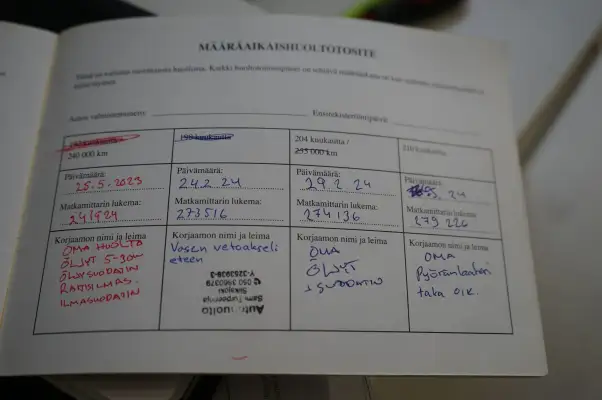 MÄÄRÄAIKAISHUOLTOTOSITE
Auton valmistenumero:
Ensirekisteröintipäivä:
192 kuukautta /
240 000 km
198 kuukautta
204 kuukautta /
255 000 km
210 kuukautta
Päivämäärä:
25.5.2023
Päivämäärä:
24.2 24
Päivämäärä:
29.2 24
Päivämäärä:
5. 24
Matkamittarin lukema:
241924
Matkamittarin lukema:
273516
Matkamittarin lukema:
274136
Matkamittarin lukema:
279226
Korjaamon nimi ja leima
OMA HUOLTO
ÖLJYT 5-30
ÖLJYSUODATIN
RAITISILMAS.
ILMASUODATIN
Korjaamon nimi ja leima
Vasen vetoakseli
eteen
Sami Turpeenoja
Siikajoki
Korjaamon nimi ja leima
OMA
ÖLJYT
+ SUODATIN
Korjaamon nimi ja leima
OMA
Pyöränlaakeri
taka oik.